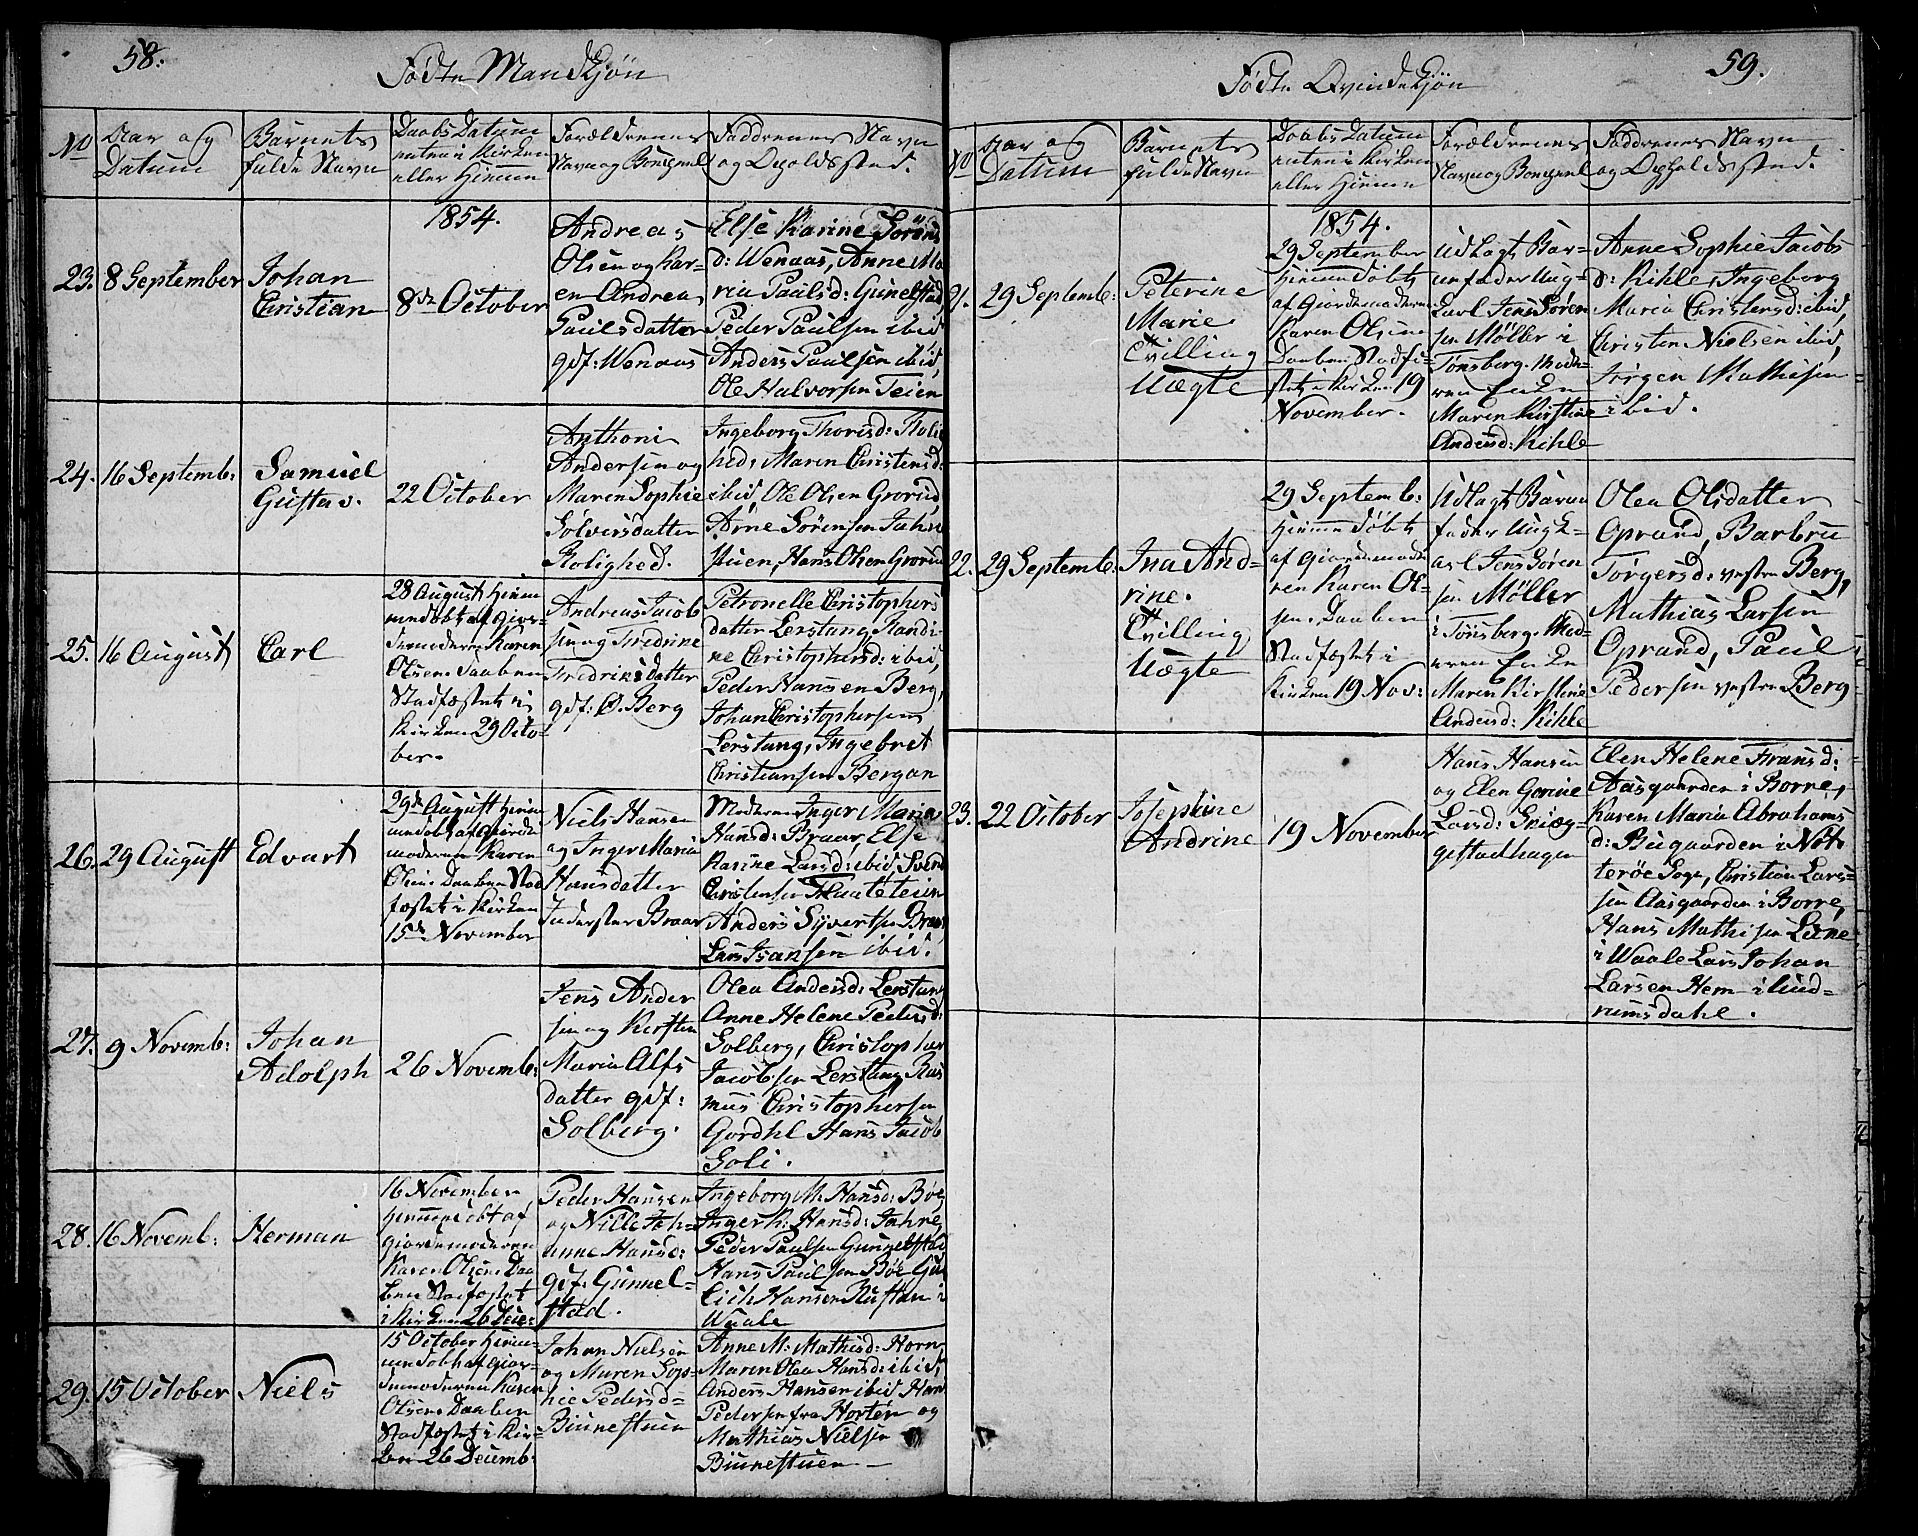 58.
Födte Mandkjön
No
Aar og
Datum
Barnets
fulde Navn
Daabs Datum
enten i Kirken
eller Hiemme
Forældrenes
Navn og
Faddrenes Navn
og Opholdssted.
23.
8 September
Johan
Christian
1854.
8de October
Andreas
Olsen og Kar-
en Andrea
Paulsdatter
gdf: Wenaas
Else Karine Sörens
d: Wenaas, Anne Ma
ria Paulsd: Gunelstad
Peder Paulsen ibid
Anders Paulsen ibid,
Ole Halvorsen Teien
24.
16 Septemb:
Samuel
Gustav.
22 October
Anthoni
Andersen og
Maren Sophie
Sölversdatter
Rolighed.
Ingeborg Thorisd: Rolig
hed, Maren Christensd:
ibid, Ole Olsen Grorud,
Arne Sörensen Jahre
stuen, Hans Olsen Grorud
25.
16 August
Carl
28 August Hiem
medöbt af Gior-
demoderen Karen
Olsen. Daaben
Stadfæstet i
Kirken 29 Octo-
ber.
Andreas Jacob
sen og Fredrine
Fredriksdatter
gdf: Ö. Berg
Petronelle Christophers
datter Lerstang, Randi-
ne Christophersd: ibid,
Peder Hansen Berg,
Johan Christophersen
Lerstang, Ingebret
Christiansen Bergan
26.
29 August
Edvart
29de August Hiem
medöbt af Giorde
moderen Karen
Olsen. Daaben Stad
fæstet i Kirken
15de November
Niels Hansen
og Inger Maria
Hansdatter
Inderster Braar
Moderen Inger Marie
Hansd: Braar, Else
Karine Larsd: ibid, Svend
Christensen Flaateteien
Anders Syvertsen Braar,
Lars Isaksen ibid.
27.
9 Novemb:
Johan
Adolph
26 Novemb:
Jens Ander
sen og Kirsten
Maria Alfs
datter gdf:
Solberg.
Olea Andersd: Lerstang
Anne Helene Pedersd:
Solberg, Christopher
Jacobsen Lerstang, Ras
mus Christophersen
Hans Jacob
Soli.
28.
16 Novemb:
Herman
16 November
Hiemmedöbt af
Giordemoderen
Karen Olsen. Daa
ben Stadfæstet
i Kirken 26 Dec:
Peder Hansen
og Nille Joh-
anne Hansd:
gdf: Gunnel-
stad.
Ingeborg M. Hansd: Böe,
Inger K: Hansd: Jahre,
Peder Paulsen Gunnelstad
Hans Paulsen Böe
Hansen Rustan i
Waale
29.
15 October
Niels
15 October Hiem-
medöbt af Gior-
demoderen Karen
Olsen. Daaben
Stadfæstet i Kir-
ken 26 Decemb:
Johan Nielsen
og Maren Sop-
hie Pedersd-
Biunestuen
Anne M: Mathisd: Horn,
Maren Olea Hansd: ibid,
Anders Hansen ibid Hans
Pedersen fra Horten og
Mathias Nielsen
Biunestuen
59.
Födte Qvindekjön
No
Aar og
Datum
Barnets
fulde Navn
Daabs Datum
enten i Kirken
eller Hiemme
Forældrenes
Navn og
Faddrenes Navn
og Opholdssted.
21.
29 Septemb:
Peterine
Marie
Tvilling
Uægte
1854.
29 September
Hiemmedöbt
af Giordemoderen
Karen Olsen
Daaben Stadfæ-
stet i Kirken 19
November.
Udlagt Bar-
nefader Ung-
karl Jens Sören
sen Möller i
Tönsberg. Mode-
ren Enke
Maren Kirstine
Andersd: Kihle
Anne Sophie Jacobs
d: Kihle, Ingeborg
Maria Christensd: ibid,
Christen Nielsen ibid,
Jörgen Mathisen
ibid.
22.
29 Septemb:
Ina And-
rine.
Tvilling
Uægte
29 Septemb:
Hiemmedöbt
af Giordemode
ren Karen Ol-
sen. Daaben
Stadfæstet i
Kirken 19 Nov:
Udlagt Barne
fader Ungk-
arl Jens Sören
sen Möller
i Tönsberg. Mod-
eren Enke
Maren Kirstine
Andersd: Kihle
Olea Olsdatter
Oprand, Barbru
Torgersd: vestre Berg,
Mathias Larsen
Oprand, Paul
Pedersen vestre Berg
23.
22 October
Josephine
Andrine
19 November
Hans Hansen
og Elen Gorine
Larsd:
gestadhagen
Elen Helene Fransd:
Aasgaarden i Borre,
Karen Maria Abrahams
d: Bugaarden i Nöt-
teröe Sogn, Christian Lars-
sen Aasgaarden i Borre,
Hans Mathisen Leene
i Waale Lars Johan
Larsen Hem i Laud-
rumsdahl.